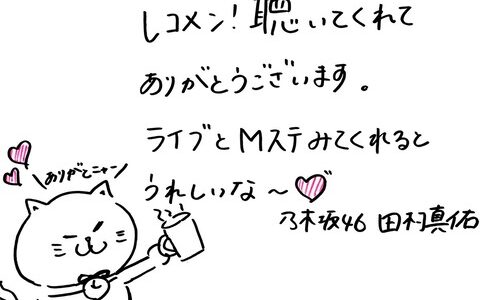 レコメン！聴いてくれて
ありがとうございます。
ライブとMステみてくれると
うれしいな〜
乃木坂46 田村真佑
ありがとニャン